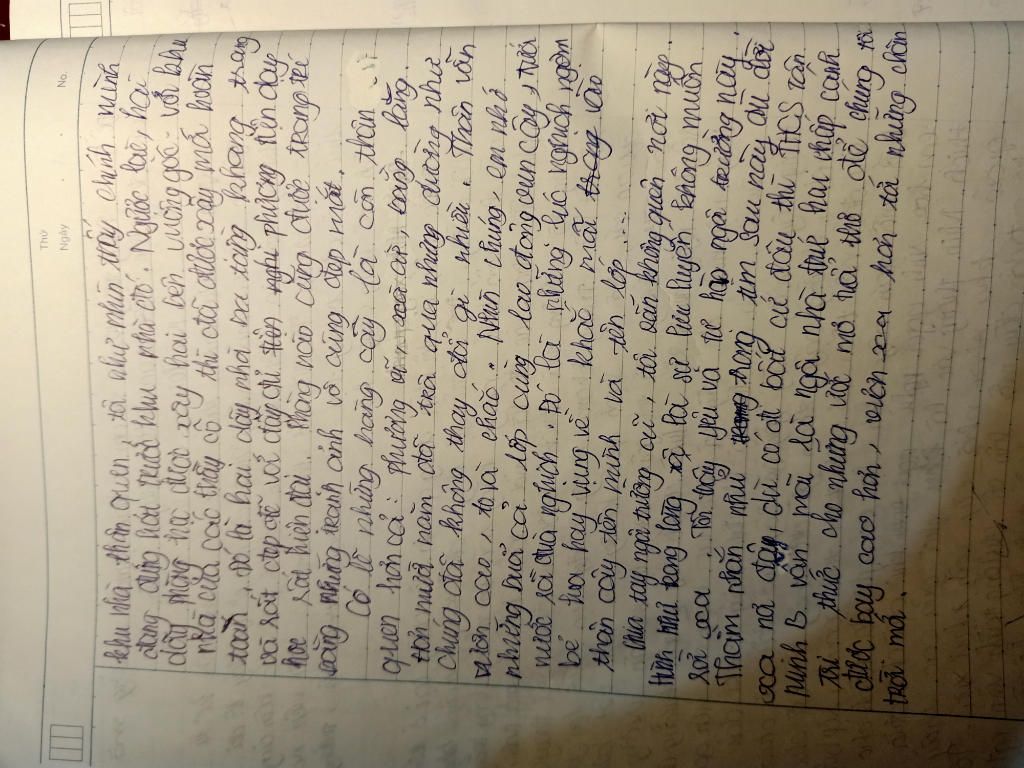 Thứ
Ngày
No.
khu nhà thân quen tôi như nhìn thấy chính mình
đang đứng hái nước khu nhà đó. Ngước lại, hai
dãy phòng mới được xây hai bên vuông góc với khu
nhà của các thầy cô thì đã được xây mới hoàn
toàn, đó là hai dãy nhà ba tầng khang trang
và sạch đẹp đẽ với đầy đủ tiện nghi phương tiện dạy
học, rất hiện đại. Phòng nào cũng được trang trí
bằng những tranh ảnh vô cùng đẹp mắt.
Có lẽ những hàng cây là còn thân
quen hơn cả: phượng vĩ xà cừ bằng lăng.
hơn mười năm đã trôi qua nhưng dường như
chúng đã không thay đổi gì nhiều. Thân vẫn
vươn cao, toả chào. Nhìn chúng, em nhớ
những buổi cả lớp cùng lao động vun cây, tưới
nước rồi đùa nghịch. Đó là những lúc nghịch ngợm
bé hoa hay vụng về khắc mất trong vào
thân cây tên mình và tên lớp....
Chia tay ngôi trường cũ, tôi vẫn không quên nơi này.
Hình như trong lòng tôi là sự lưu luyến không muốn
rời xa. Tôi thấy yêu và tự hào ngôi trường này.
Thầm nhắn nhủ trong tim sau này dù đời
xa nó đây, dù có đi bất cứ đâu thì THCS Tân
Minh B vẫn mãi là ngôi nhà thứ hai chắp cánh
tri thức cho những ước mơ nhỏ thơ để chúng tôi
được bay cao hơn, vươn xa hơn tới những chân
trời mới.